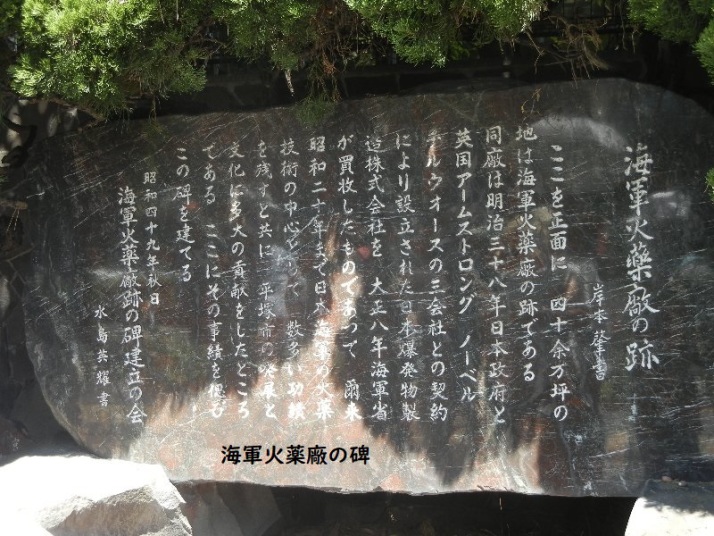 海軍火薬廠の跡
岸本肇書
ここを正面に 四十余万坪の
地は海軍火薬廠の跡である
同廠は明治三十八年日本政府と
英国アームストロング ノーベル
チルウオースの三会社との契約
により設立された日本爆発物製
造株式会社を 大正八年海軍省
が買収したものであって 爾来
昭和二十年まで日本海軍の火薬
技術の中心となって 数多い功績
を残すと共に 平塚市の発展と
文化に多大の貢献をしたところ
である ここにその事績を偲び
この碑を建てる
昭和四十九年秋日
海軍火薬廠跡の碑建立の会
水島共耀書
海軍火薬廠の碑